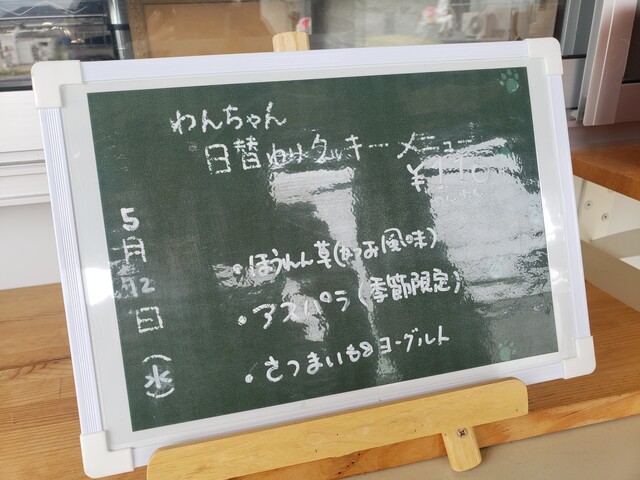 わんちゃん
日替わりクッキーメニュー
¥110
5月12日(水)
・ほうれん草(かつお風味)
・アスパラ(季節限定)
・さつまいも&ヨーグルト